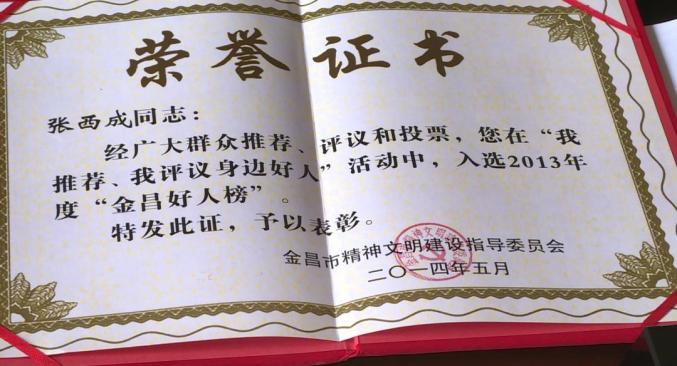 荣誉证书
张西成同志：
经广大群众推荐、评议和投票，您在“我
推荐、我评议身边好人”活动中，入选2013年
度“金昌好人榜”。
特发此证，予以表彰。
金昌市精神文明建设指导委员会
二〇一四年五月